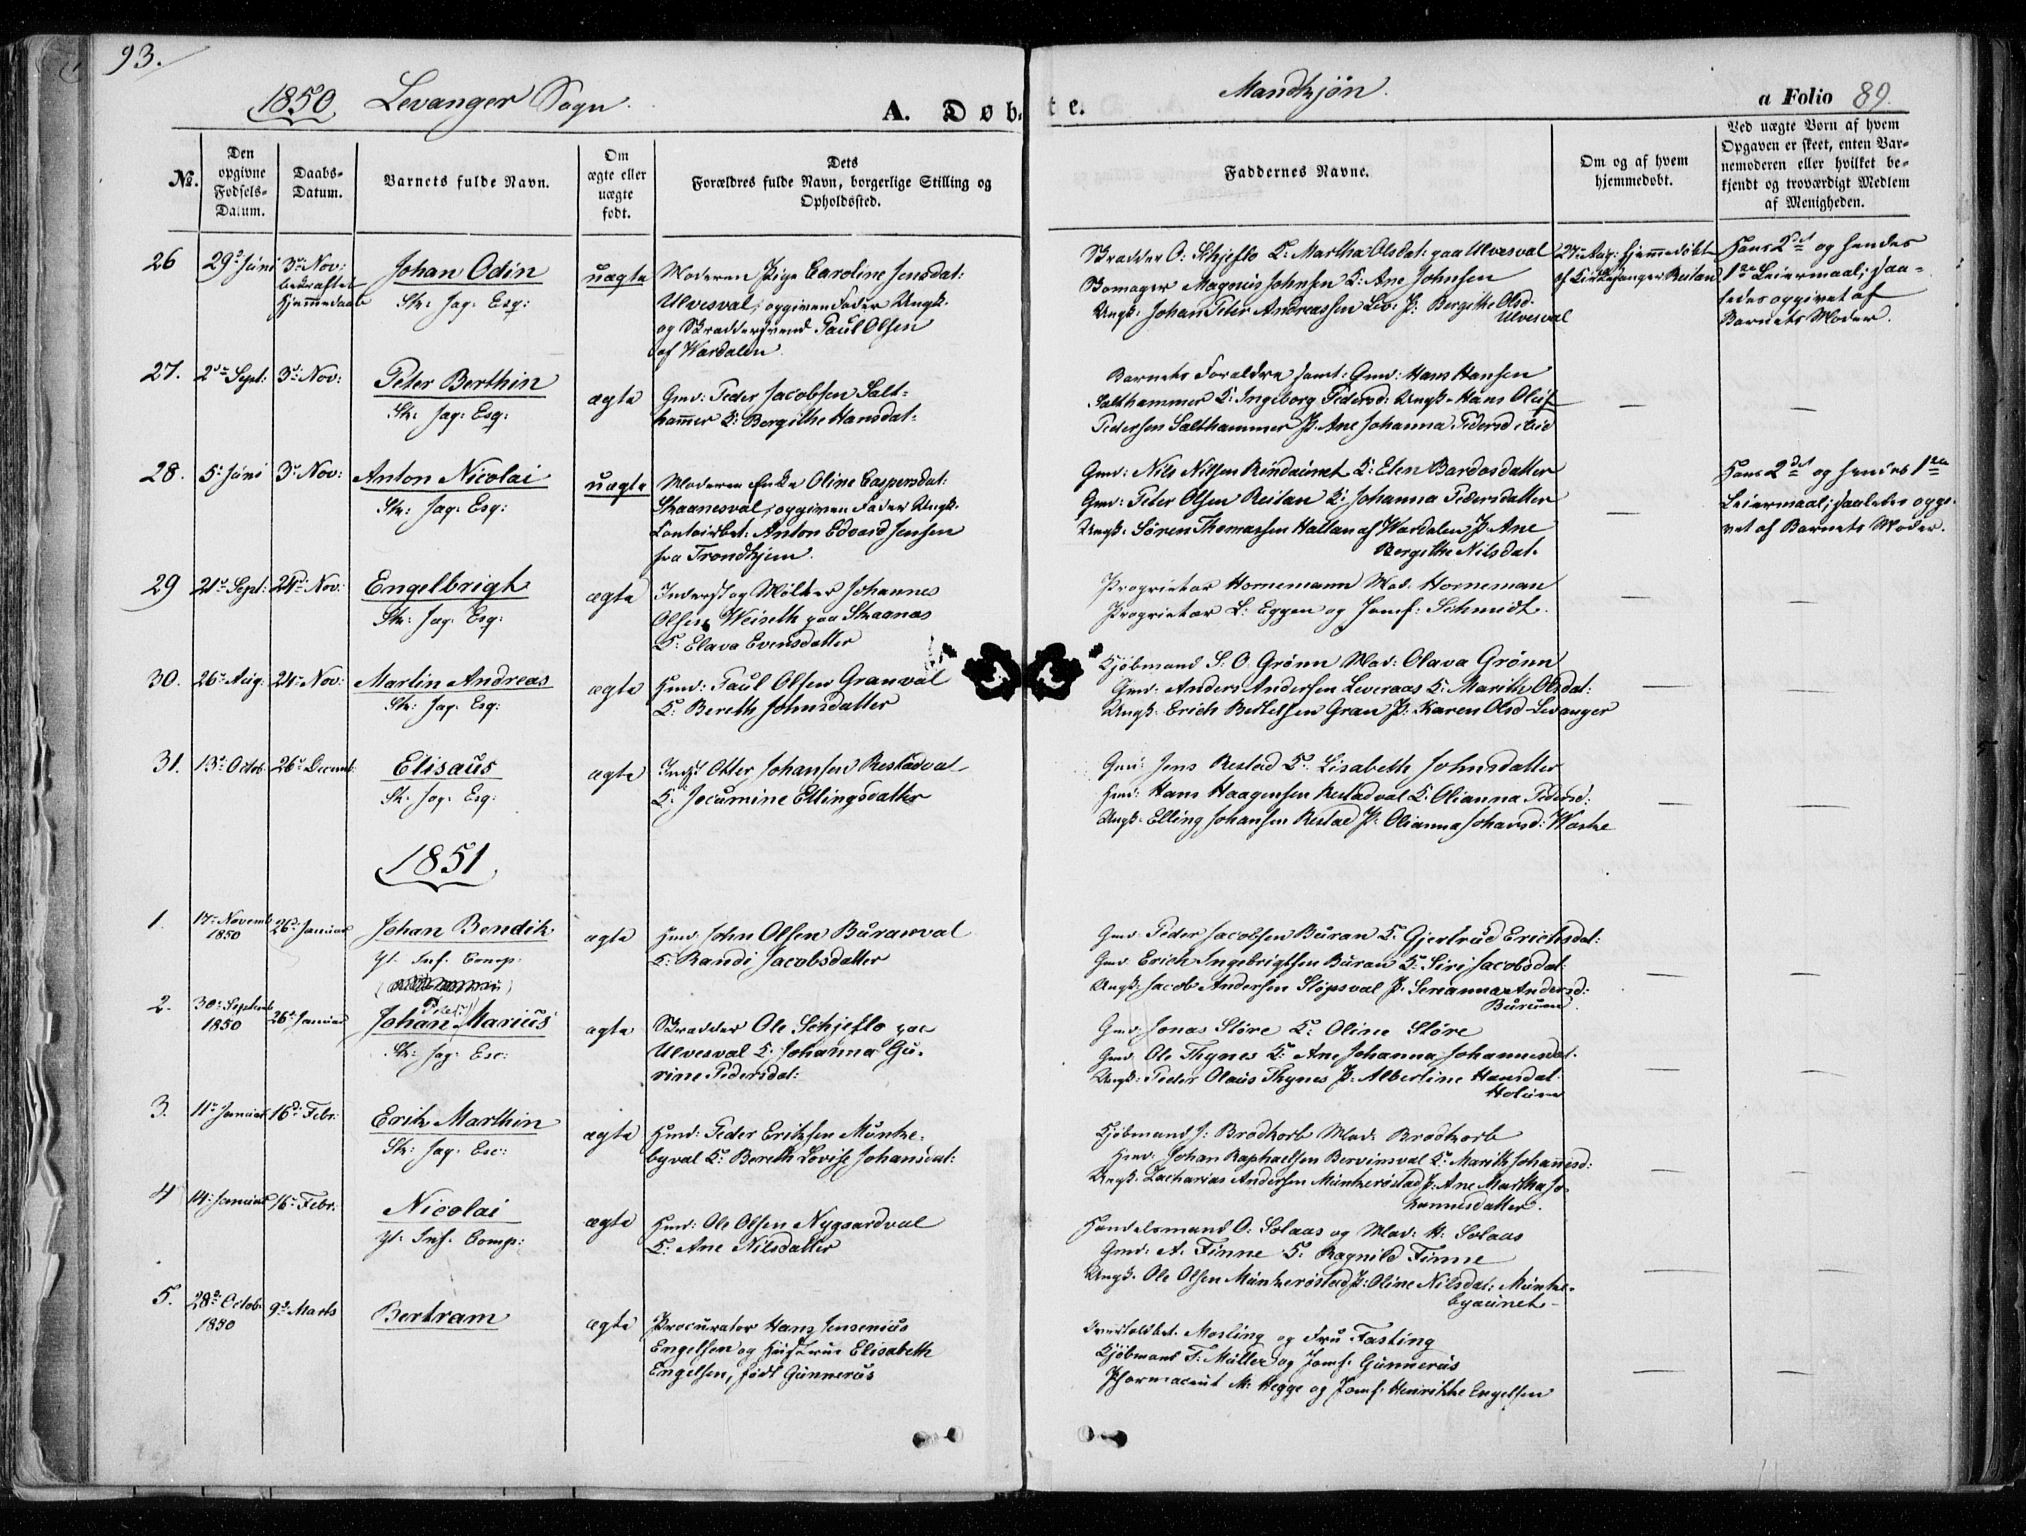 93.
1850 Levanger Sogn
A. Døbte.
Mandkjøn.
a Folio 89.
No.
Den opgivne Fødsels-Datum.
Daabs-Datum.
Barnets fulde Navn.
Om ægte eller uægte født.
Dets Forældres fulde Navn, borgerlige Stilling og Opholdssted.
Faddernes Navne.
Om og af hvem hjemmedøbt.
Ved uægte Børn af hvem Opgaven er skeet, enten Barnemoderen eller hvilket bekjendt og troværdigt Medlem af Menigheden.
26 29d Juni 3d Nov: bekræftet Hjemmedaab
Johan Odin
Sk: Jag: Esq:
uægte
Moderen Pige Caroline Jensdat:
Ulvesval, opgiven Fader Ungk:
og Skræddersvend Paul Olsen
af Værdalen.
Skrædder O: Schjeflo K: Martha Olsdat: paa Ulvesval
Magnus Johnsen K: Ane Johnsen
Ungk: Johan Peter Andreassen P: Bergitte Olsd. Ulvesval
27de Aug: hjemmedøbt
af Kirkesanger Reitan
Hans 2det og hendes
1ste Leiermaal; saaledes opgivet af
Barnets Moder.
27. 2den Sept: 3d Nov:
Peter Berthin
Sk: Jag: Esq:
ægte
Gmd: Peder Jacobsen Salthammer K: Bergithe Hansdat:
Barnets Forældre samt: Gmd: Hans Hansen
Salthammer K: Ingeborg Pedersd: Ungk: Hans Oluf
Pedersen Salthammer P: Ane Johanna Pedersd
28. 5d Juni 3d Nov:
Anton Nicolai
Sk: Jag: Esq:
uægte
Moderen Enke Oline Caspersdat:
Skaanesval, opgiven Fader Ungk:
Contoirbet: Anton Edvard Jensen
fra Trondhjem.
Gmd: Nils Nilsen Rindaunet K: Elen Bardosdatter
Gmd: Peter Olsen Reitan K: Johanna Pedersdatter
Ungk: Søren Thomassen Hallan af Værdalen P: Ane
Bergithe Nilsdat.
Hans 2det og hendes 1ste
Leiermaal; saaledes opgivet af Barnets Moder.
29 21d Sept: 24d Nov:
Engelbrigt
Sk: Jag: Esq:
ægte
Inderst og Møller Johannes
Olsen Weiseth paa Skaanes
K: Elava Evensdatter
Proprietær Hornemann Mad: Horneman
Proprietær L: Eggen og Jomf: Schmidt.
30. 26d Aug: 24d Nov:
Martin Andreas
Sk: Jag: Esq:
ægte
Hmd: Paul Olsen Granval
K: Bereth Johnsdatter
Kjøbmand S. O. Grønn Mad: Olava Grønn
Gmd: Anders Andersen Leveraas K: Marith Olsdat:
Ungk: Erich Bertelsen Gran P: Karen Olsd Levanger
31. 13d Octob: 26d Decemb:
Elisæus
Sk: Jag: Esq:
ægte
Indst Otter Johansen Restadval
K: Jocumine Ellingsdatter
Gmd: Jens Restad K: Lisabeth Johnsdatter
Hmd: Hans Haagensen Restadval K: Olianna Pedersd:
Ungk: Elling Johansen Restad P: Olianna Johansd:
1851
1. 17d Novemb 1850 26d Januar
Johan Bendik
Yt: Inf. Comp:
ægte
Hmd John Olsen Buranval
K: Randi Jacobsdatter
Gmd: Peder Jacobsen Buran K: Gjertrud Erichsdat:
Gmd: Erich Ingebrigtsen Buran K: Siri Jacobsdat:
Ungk: Jacob Andersen Slupsval P: Serianna Andersd:
2. 30d Septemb 1850 26d Januar
Johan Peter Marius
Sk: Jag: Esc:
ægte
Skrædder Ole Schjeflo paa
Ulvesval K: Johanna Gurine Pedersdat:
Gmd: Jonas Støre K: Oline Støre
Gmd: Ole Thynes K: Ane Johanna Johannesdat.
Ungk: Peder Olaus Thynes P: Albertine Hansdat:
3. 11d Januar 16d Febr:
Erik Marthin
Sk: Jag: Esc:
ægte
Hmd: Peder Eriksen Munkebyval K: Bereth Lovise Johansdat:
Kjøbmand J: Brodkorb Mad: Brodkorb
Hmd: Johan Raphaelsen Bervinsval K: Marith Johannesd:
Ungk: Zacharias Andersen Munkerøstad P: Ane Martha Johannesdatter.
4 14d Januar 16d Febr:
Nicolai
Yt: Inf. Comp:
ægte
Hmd: Ole Olsen Nygaardval
K: Ane Nilsdatter
Handelsmand O: Solaas og Mad: H: Solaas
Gmd: A. Finne K: Ragnild Finne
Ungk: Ole Olsen Munkerøstad P: Oline Nilsdat: Munkebyaunet
5. 28d Octob: 1850 9d Marts
Bertram
ægte
Procurator Hans Jensenius
Engelsen og Hustrue Elisabeth
Engelsen, født Gunnerus
Mosling og Fru Fasting
Kjøbmand F: Müller og Jomf: Gunnerus
Pharmaceut M: Hegge og Jomf: Henrikke Engelsen